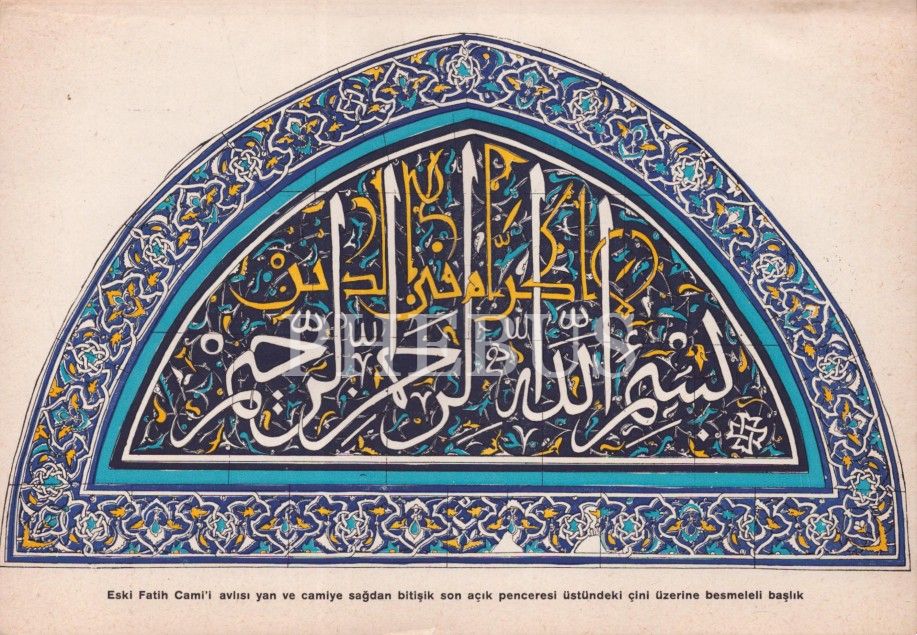 لا اكراه في الدين
بسم الله الرحمن الرحيم
PHEBUS
Eski Fatih Cami'i avlısı yan ve camiye sağdan bitişik son açık penceresi üstündeki çini üzerine besmeleli başlık